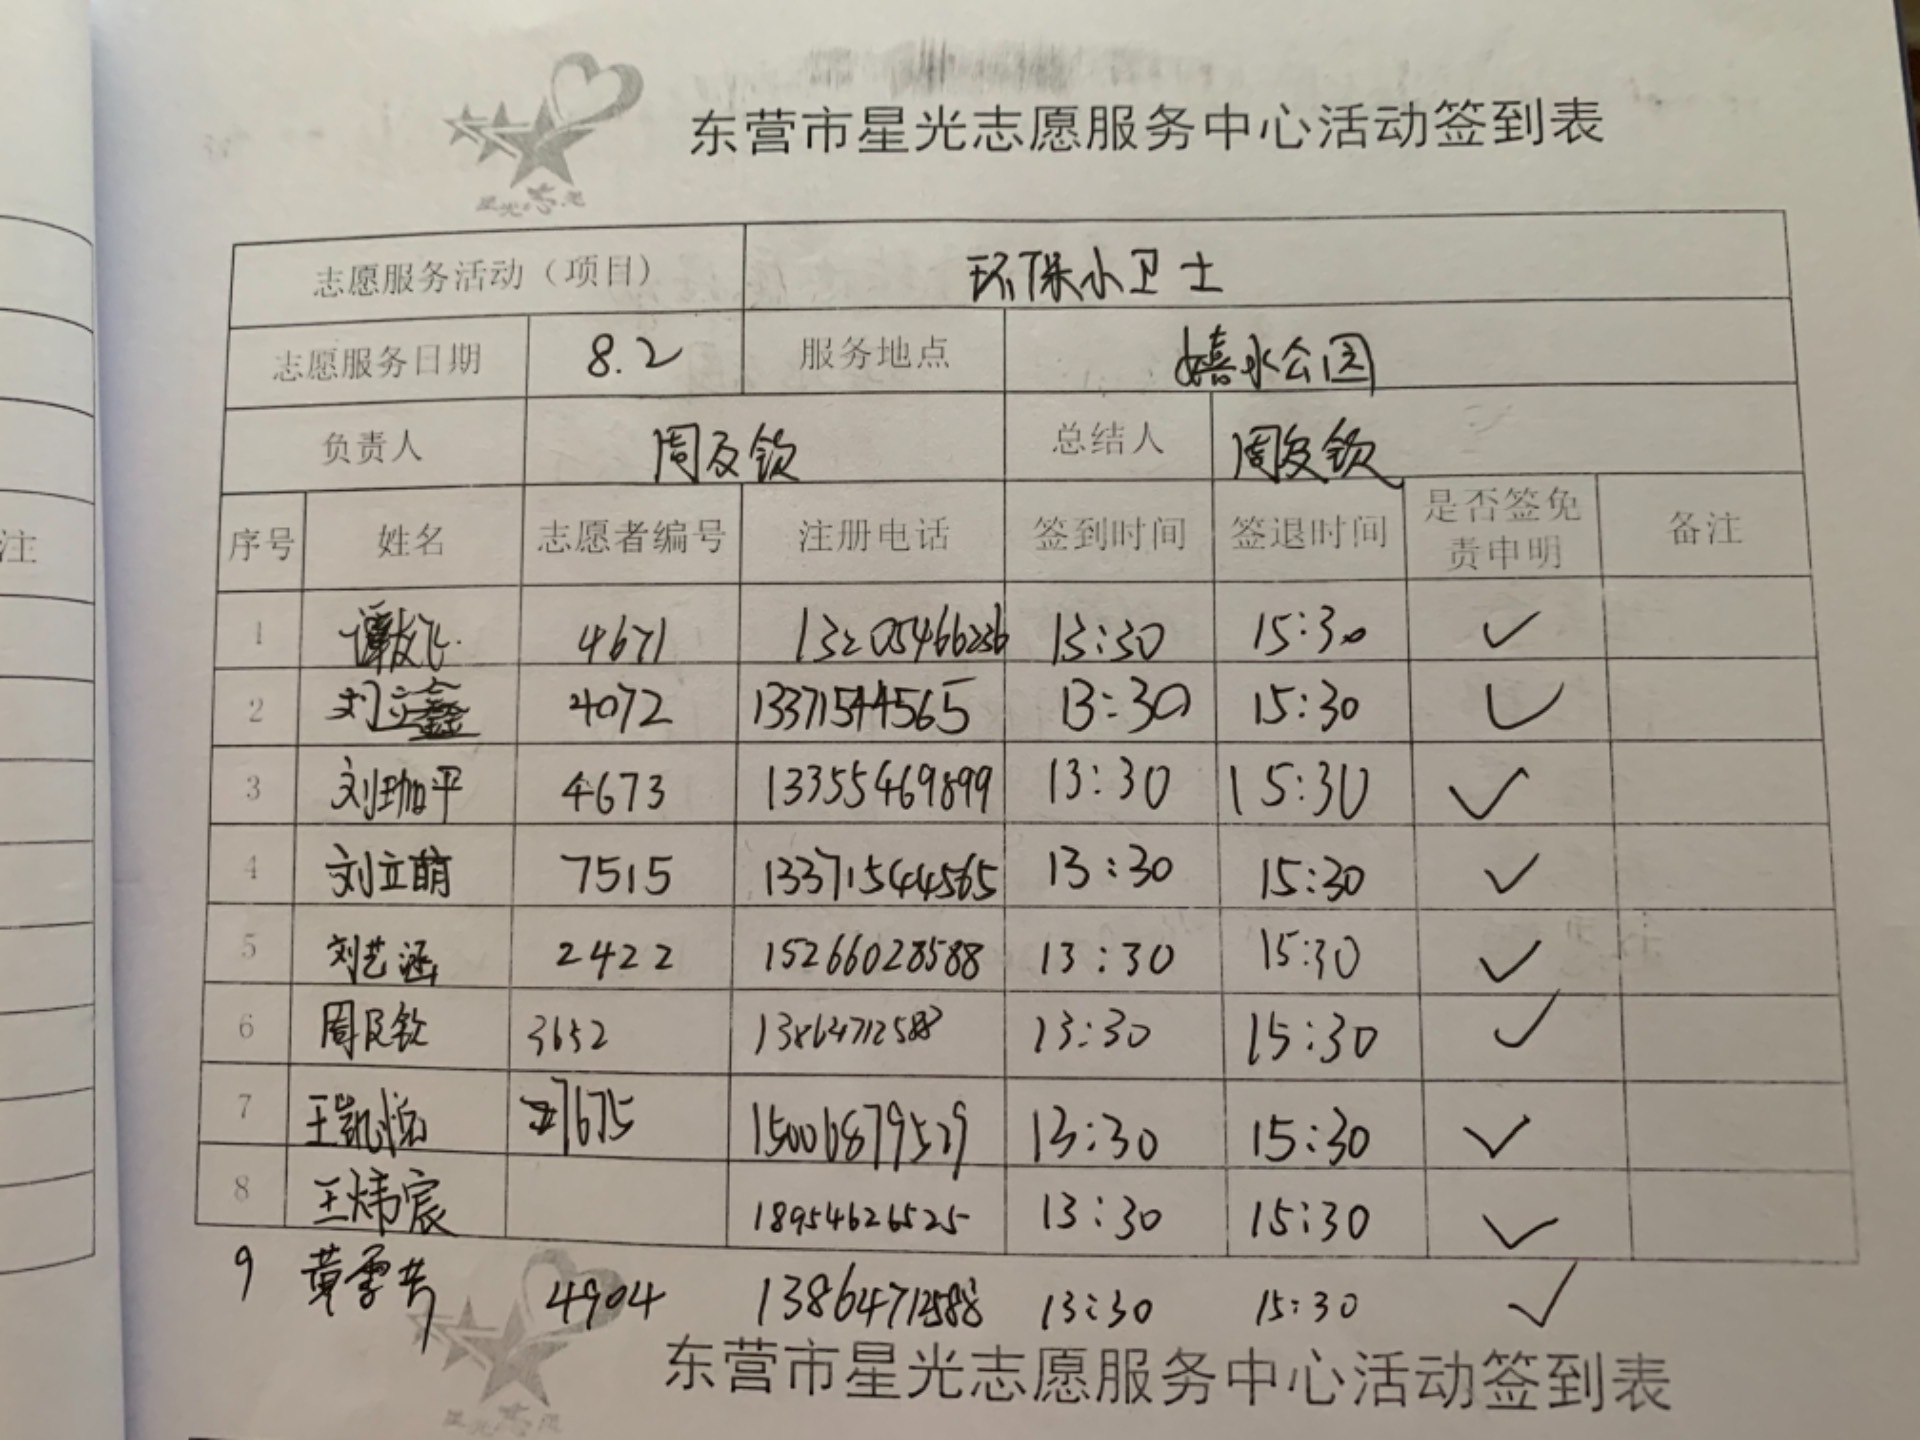 东营市星光志愿服务中心活动签到表
星光志愿
志愿服务活动（项目） 环保小卫士
志愿服务日期 8.2 服务地点 嬉水公园
负责人 周友钦 总结人 周友钦
序号 姓名 志愿者编号 注册电话 签到时间 签退时间 是否签免责申明 备注
注
1 谭友飞 4671 13205466236 13:30 15:30 ✓
2 刘立鑫 4072 13371544565 13:30 15:30 ✓
3 刘珈平 4673 13355469899 13:30 15:30 ✓
4 刘立萌 7515 13371544565 13:30 15:30 ✓
5 刘艺涵 2422 15266028588 13:30 15:30 ✓
6 周友钦 3652 13864712588 13:30 15:30 ✓
7 王凯 7675 15006879529 13:30 15:30 ✓
8 王炜宸 18954626525 13:30 15:30 ✓
9 黄雪 4904 13864712588 13:30 15:30 ✓
东营市星光志愿服务中心活动签到表
星光志愿